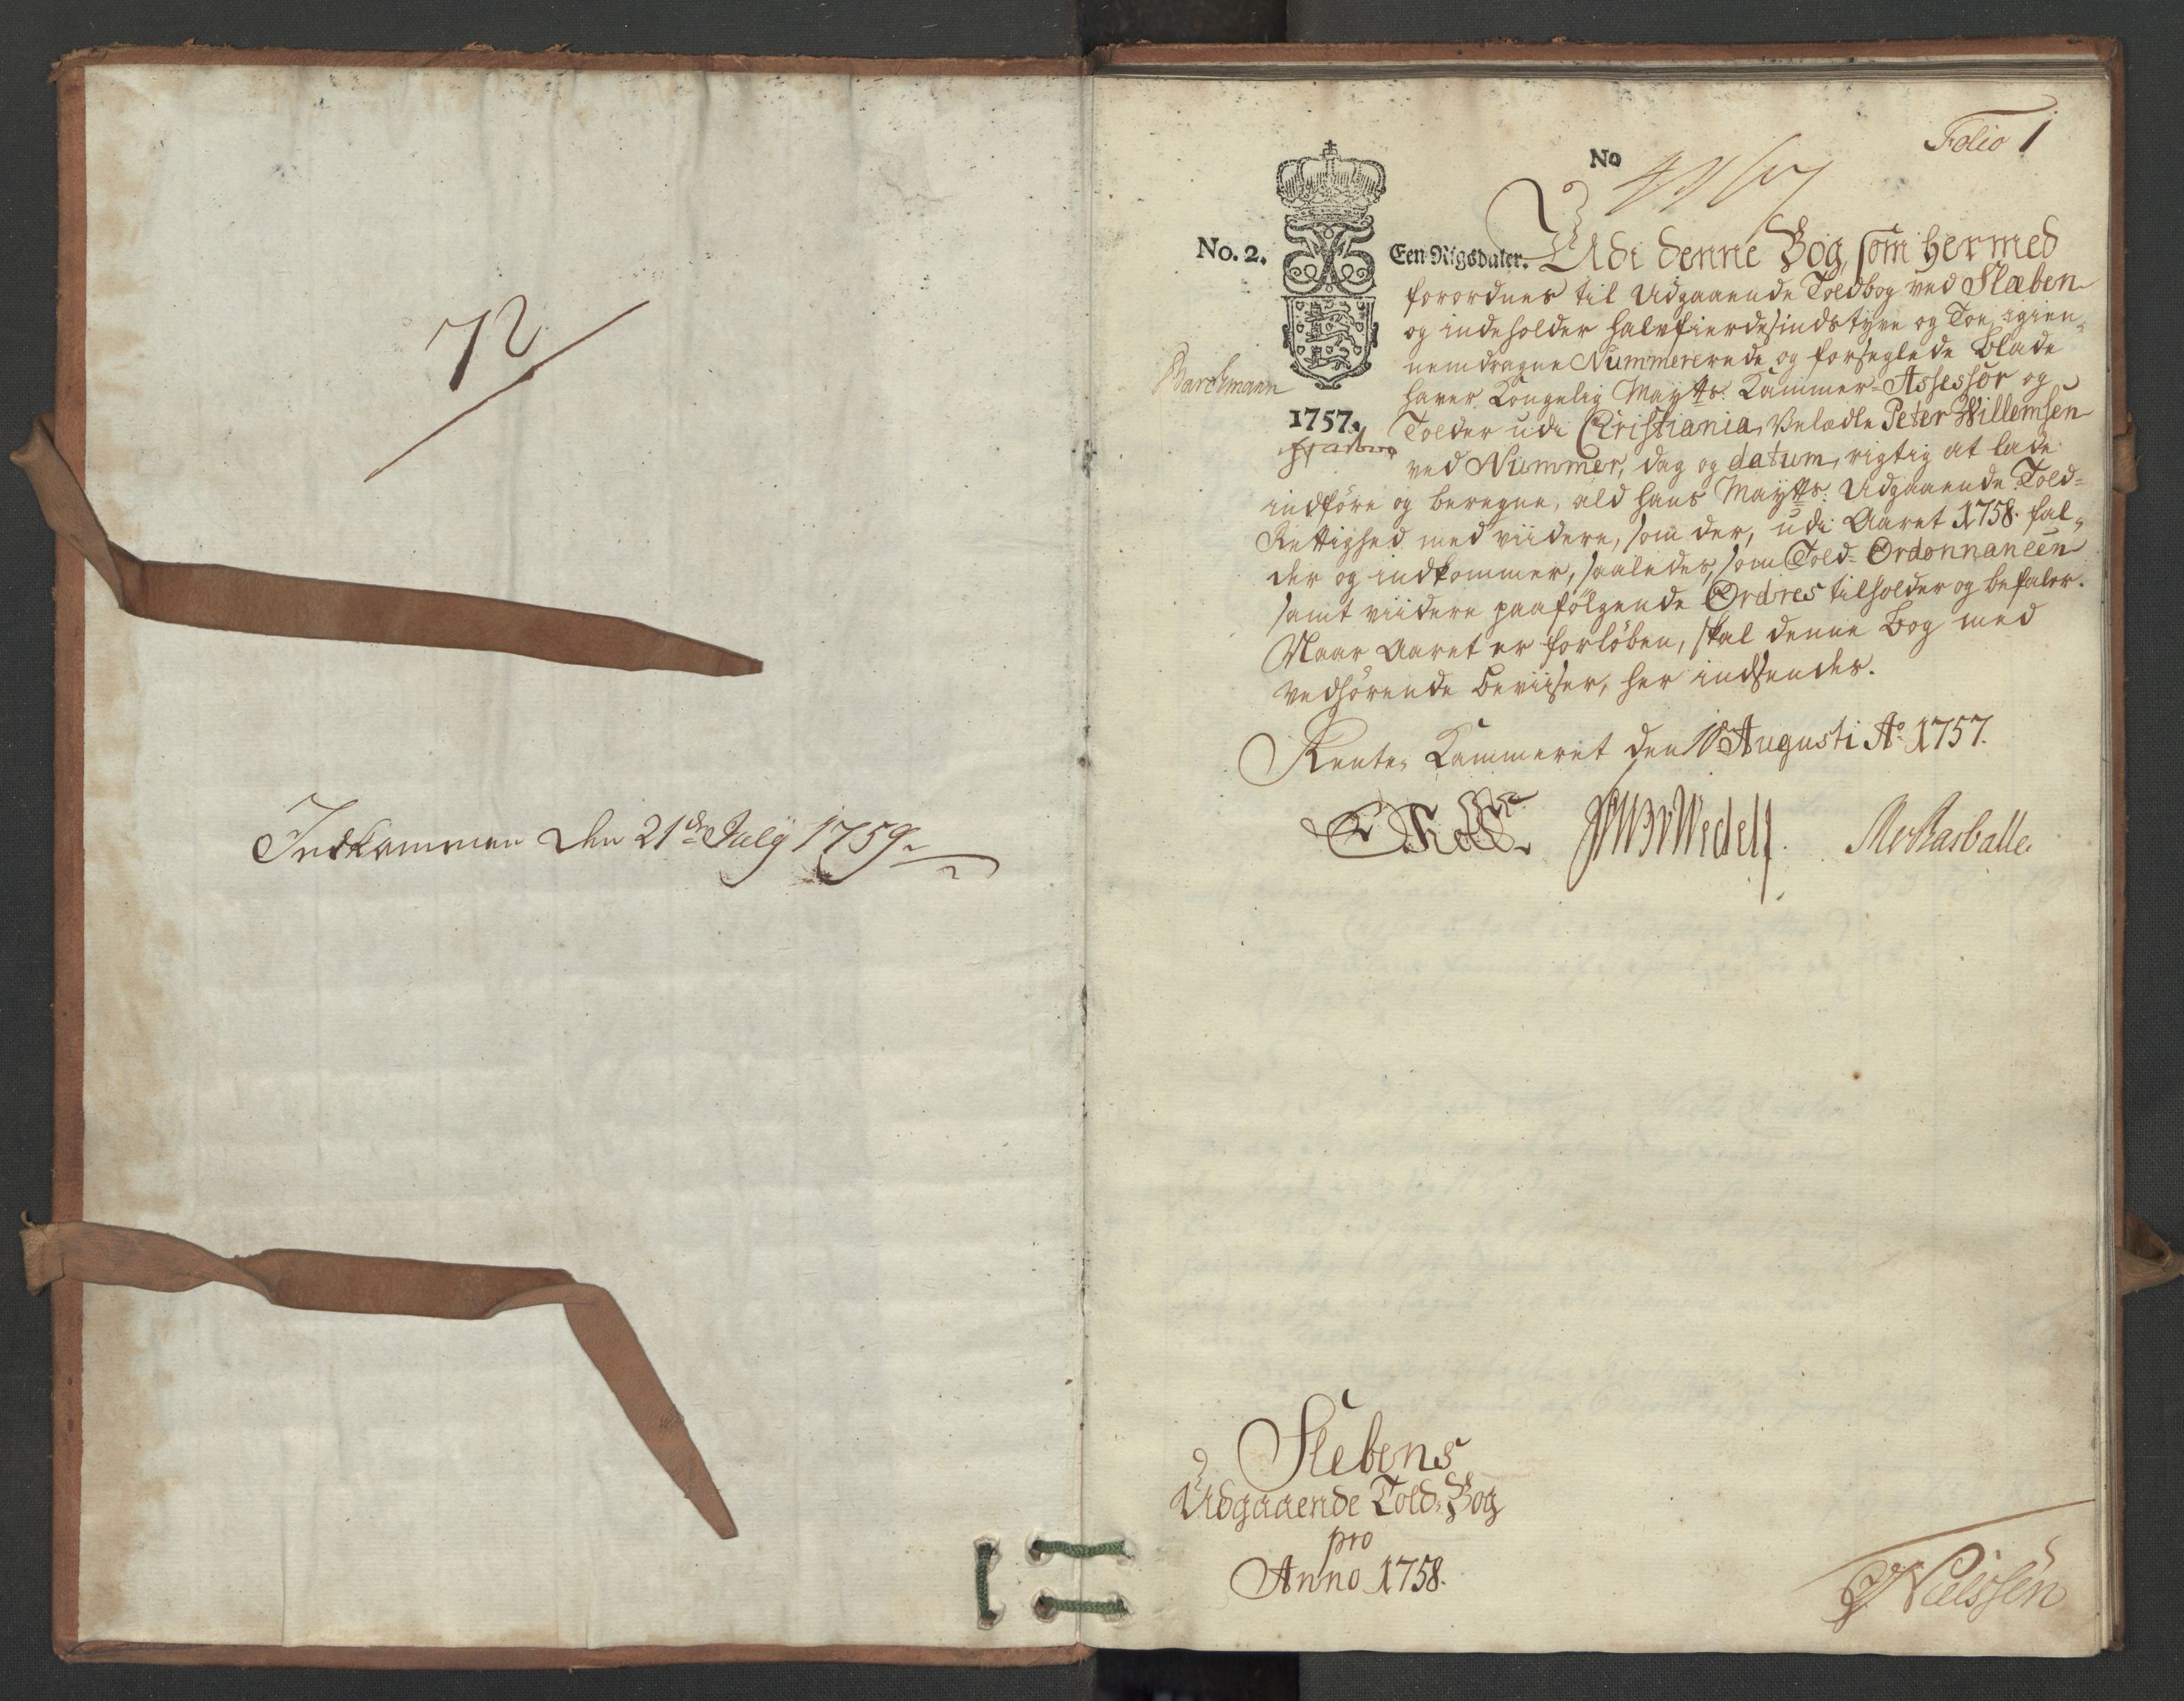 72
Indkommen den 21de July 1759.
Folio 1
No
No. 2.
Een Rigsdaler.
1757.
Udi denne Bog, som hermed
forordnes til Udgaaende Toldbog ved Slæben
og indeholder halvfierdesindstyve og Toe, igien-
nemdragne Nummererede og forseglede Blade
haver Kongelig Maytts: Kammer-Assessor og
Tolder udi Christiania, Velædle Peter Willemsen
ved Nummer, dag og datum, rigtig at lade
indføre og beregne, ald hans Maytts: Udgaaende Told-
Rettighed med viidere, som der, udi Aaret 1758. fal-
der og indkommer, saaledes, som Told-Ordonnancen
samt viidere paafølgende Ordres tilholder og befaler.
Naar Aaret er forløben, skal denne Bog med
vedhørende Beviiser, her indsendes.
Rente-Kammeret den 18 Augusti Ao 1757.
Slebens
Udgaaende Told-Bog
pro
Anno 1758.